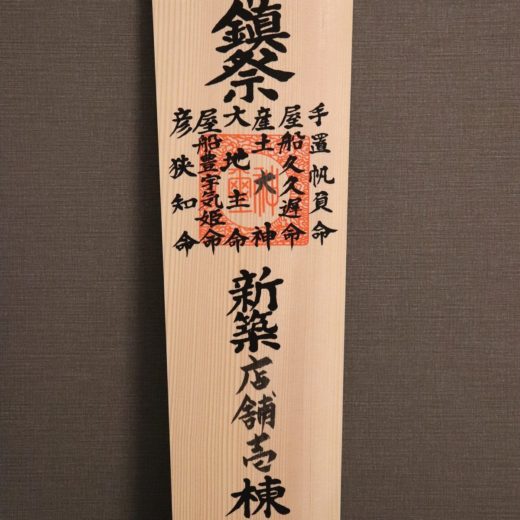 鎮祭
手置帆負命
屋船久久遅命
産土大神
大地主命
屋船豊宇気姫命
彦狭知命
新築店舗壱棟